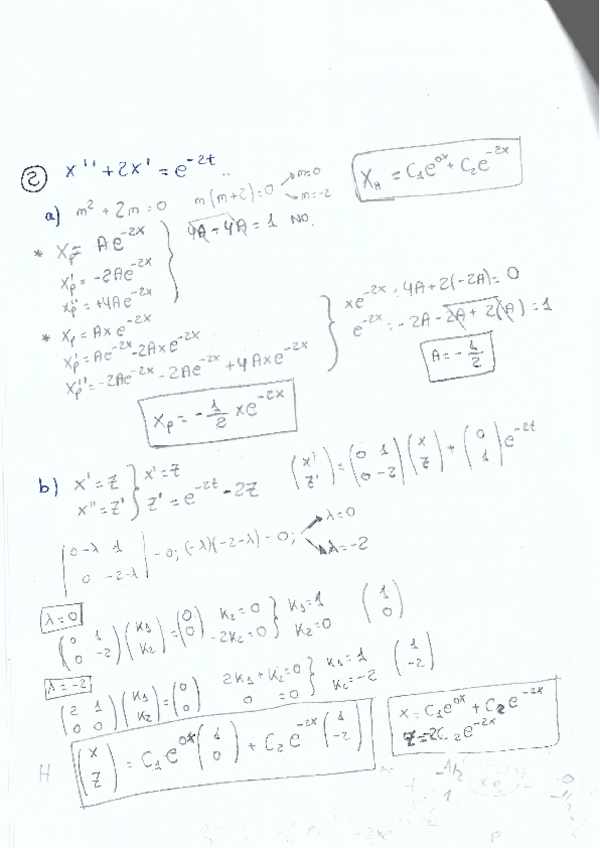 ② x'' + 2x' = e^{-2t} ..
a) m² + 2m = 0 m(m+2) = 0 → m=0 → m=-2 X_H = C₁e^{0x} + C₂e^{-2x}
* X_p = Ae^{-2x} 4A - 4A = 1 NO.
X_p' = -2Ae^{-2x}
X_p'' = +4Ae^{-2x}
* X_p = Axe^{-2x} xe^{-2x} : 4A + 2(-2A) = 0
X_p' = Ae^{-2x} - 2Axe^{-2x} e^{-2x} = -2A - 2A + 2(A) = 1
X_p'' = -2Ae^{-2x} - 2Ae^{-2x} + 4Axe^{-2x} A = -1/2
X_p = -1/2 xe^{-2x}
b) x' = z } x' = z (x' z') = (0 1 0 -2) (x z) + (0 1) e^{-2t}
x'' = z' } z' = e^{-2t} - 2z
|0-λ 1 0 -2-λ| = 0; (-λ)(-2-λ) = 0; → λ=0 → λ=-2
λ=0
(0 1 0 -2) (K₁ K₂) = (0 0) K₂ = 0 -2K₂ = 0 } K₁ = 1 K₂ = 0 (1 0)
λ=-2
(2 1 0 0) (K₁ K₂) = (0 0) 2K₁ + K₂ = 0 0 = 0 } K₁ = 1 K₂ = -2 (1 -2)
H (x z) = C₁e^{0x} (1 0) + C₂e^{-2x} (1 -2) x = C₁e^{0x} + C₂e^{-2x}
z = 2C₂e^{-2x}